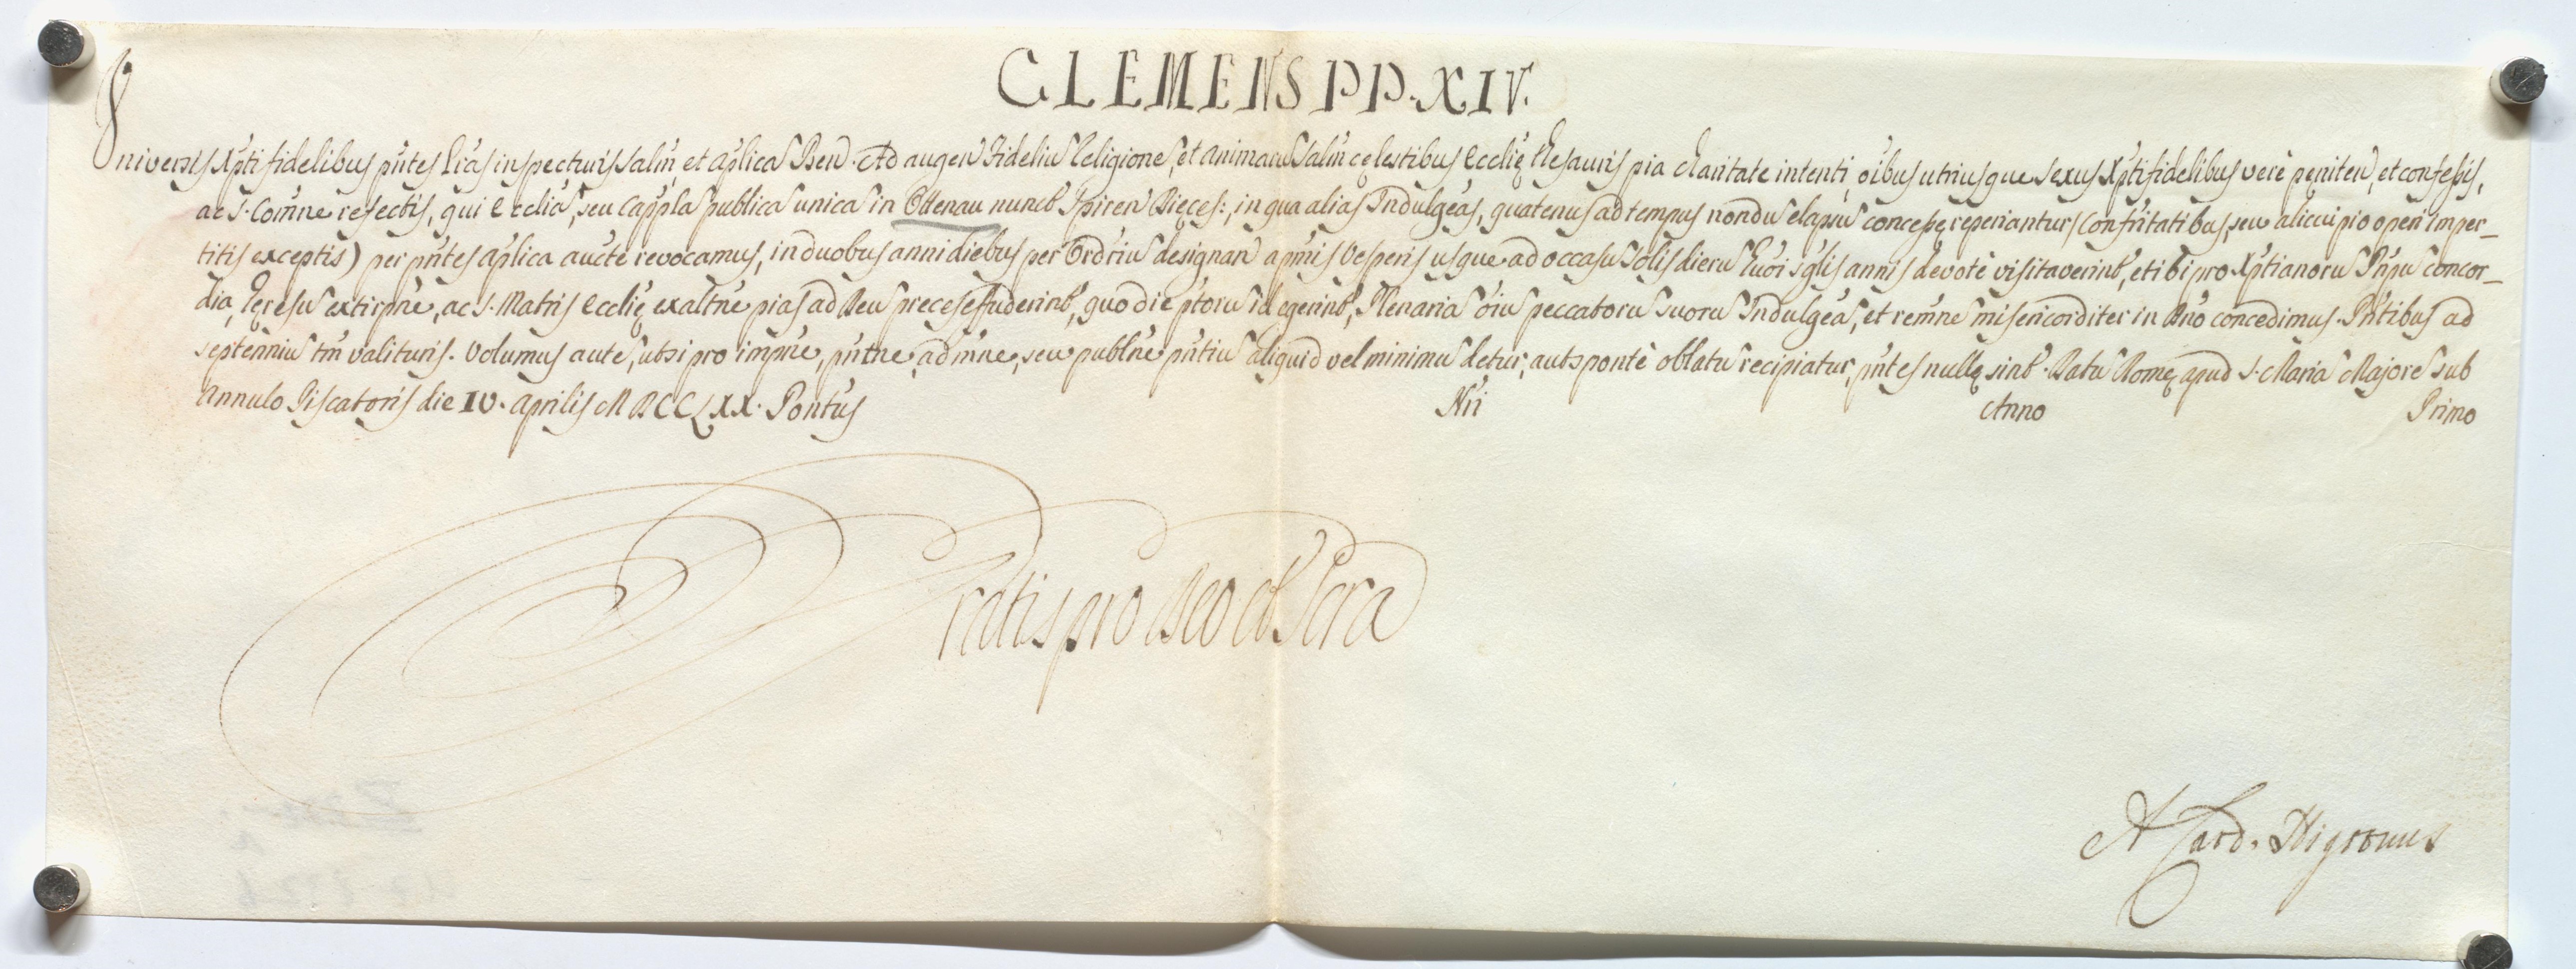 CLEMENS PP. XIV.
Universis Xpti fidelibus pñtes Lrãs inspecturis Salm̃, et aplĩca Ben̄. Ad augen̄ Fideliũ Religionẽ, et animarũ Salm̃ cęlestibus Ecclię thesauris pia charitate intenti, oĩbus utriusque sexus Xptifidelibus verè pęniten̄, et confeßis,
ac S. Com̃ne refectis, qui Ecclĩã, seu Cappl̃ã publicã unicã in Ottenau nuncũ Spiren̄ Dięces:, in qua alias Indulgẽas, quatenus ad tempus nondũ elapsũ conceßę reperiantur (Confrĩtatibus, seu alicui pio operi imper-
titis exceptis) per pñtes aplĩca aucte revocamus, in duobus anni diebus per Ordriũ designan̄ a pm̃is Vesperis usque ad occasũ Solis dierũ hũõi sglĩs annis devotè visitaverint, et ibi pro Xptianorũ Pñpũ concor-
dia, hęresũ extirpñe, ac S. Matris Ecclię exaltñe pias ad Deũ preces effuderint, quo die ptorũ id egerint, Plenariã oĩũ peccatorũ suorũ Indulgẽã, et rem̃ne misericorditer in Dño concedimus. Pñtibus ad
septenniũ tm̃ valituris. Volumus autẽ, ut si pro impñe, pñtñe, adm̃ne, seu publñe pñtiũ aliquid vel minimũ detur, aut sponte oblatũ recipiatur, pñtes nullę sint. Datũ Romę apud S. Mariã Majorẽ sub
Annulo Piscatoris die IV. Aprilis MDCCLXX. Pontũs Nri Anno Primo
Gratis pro Deo et Scra
A Card. Nigronus